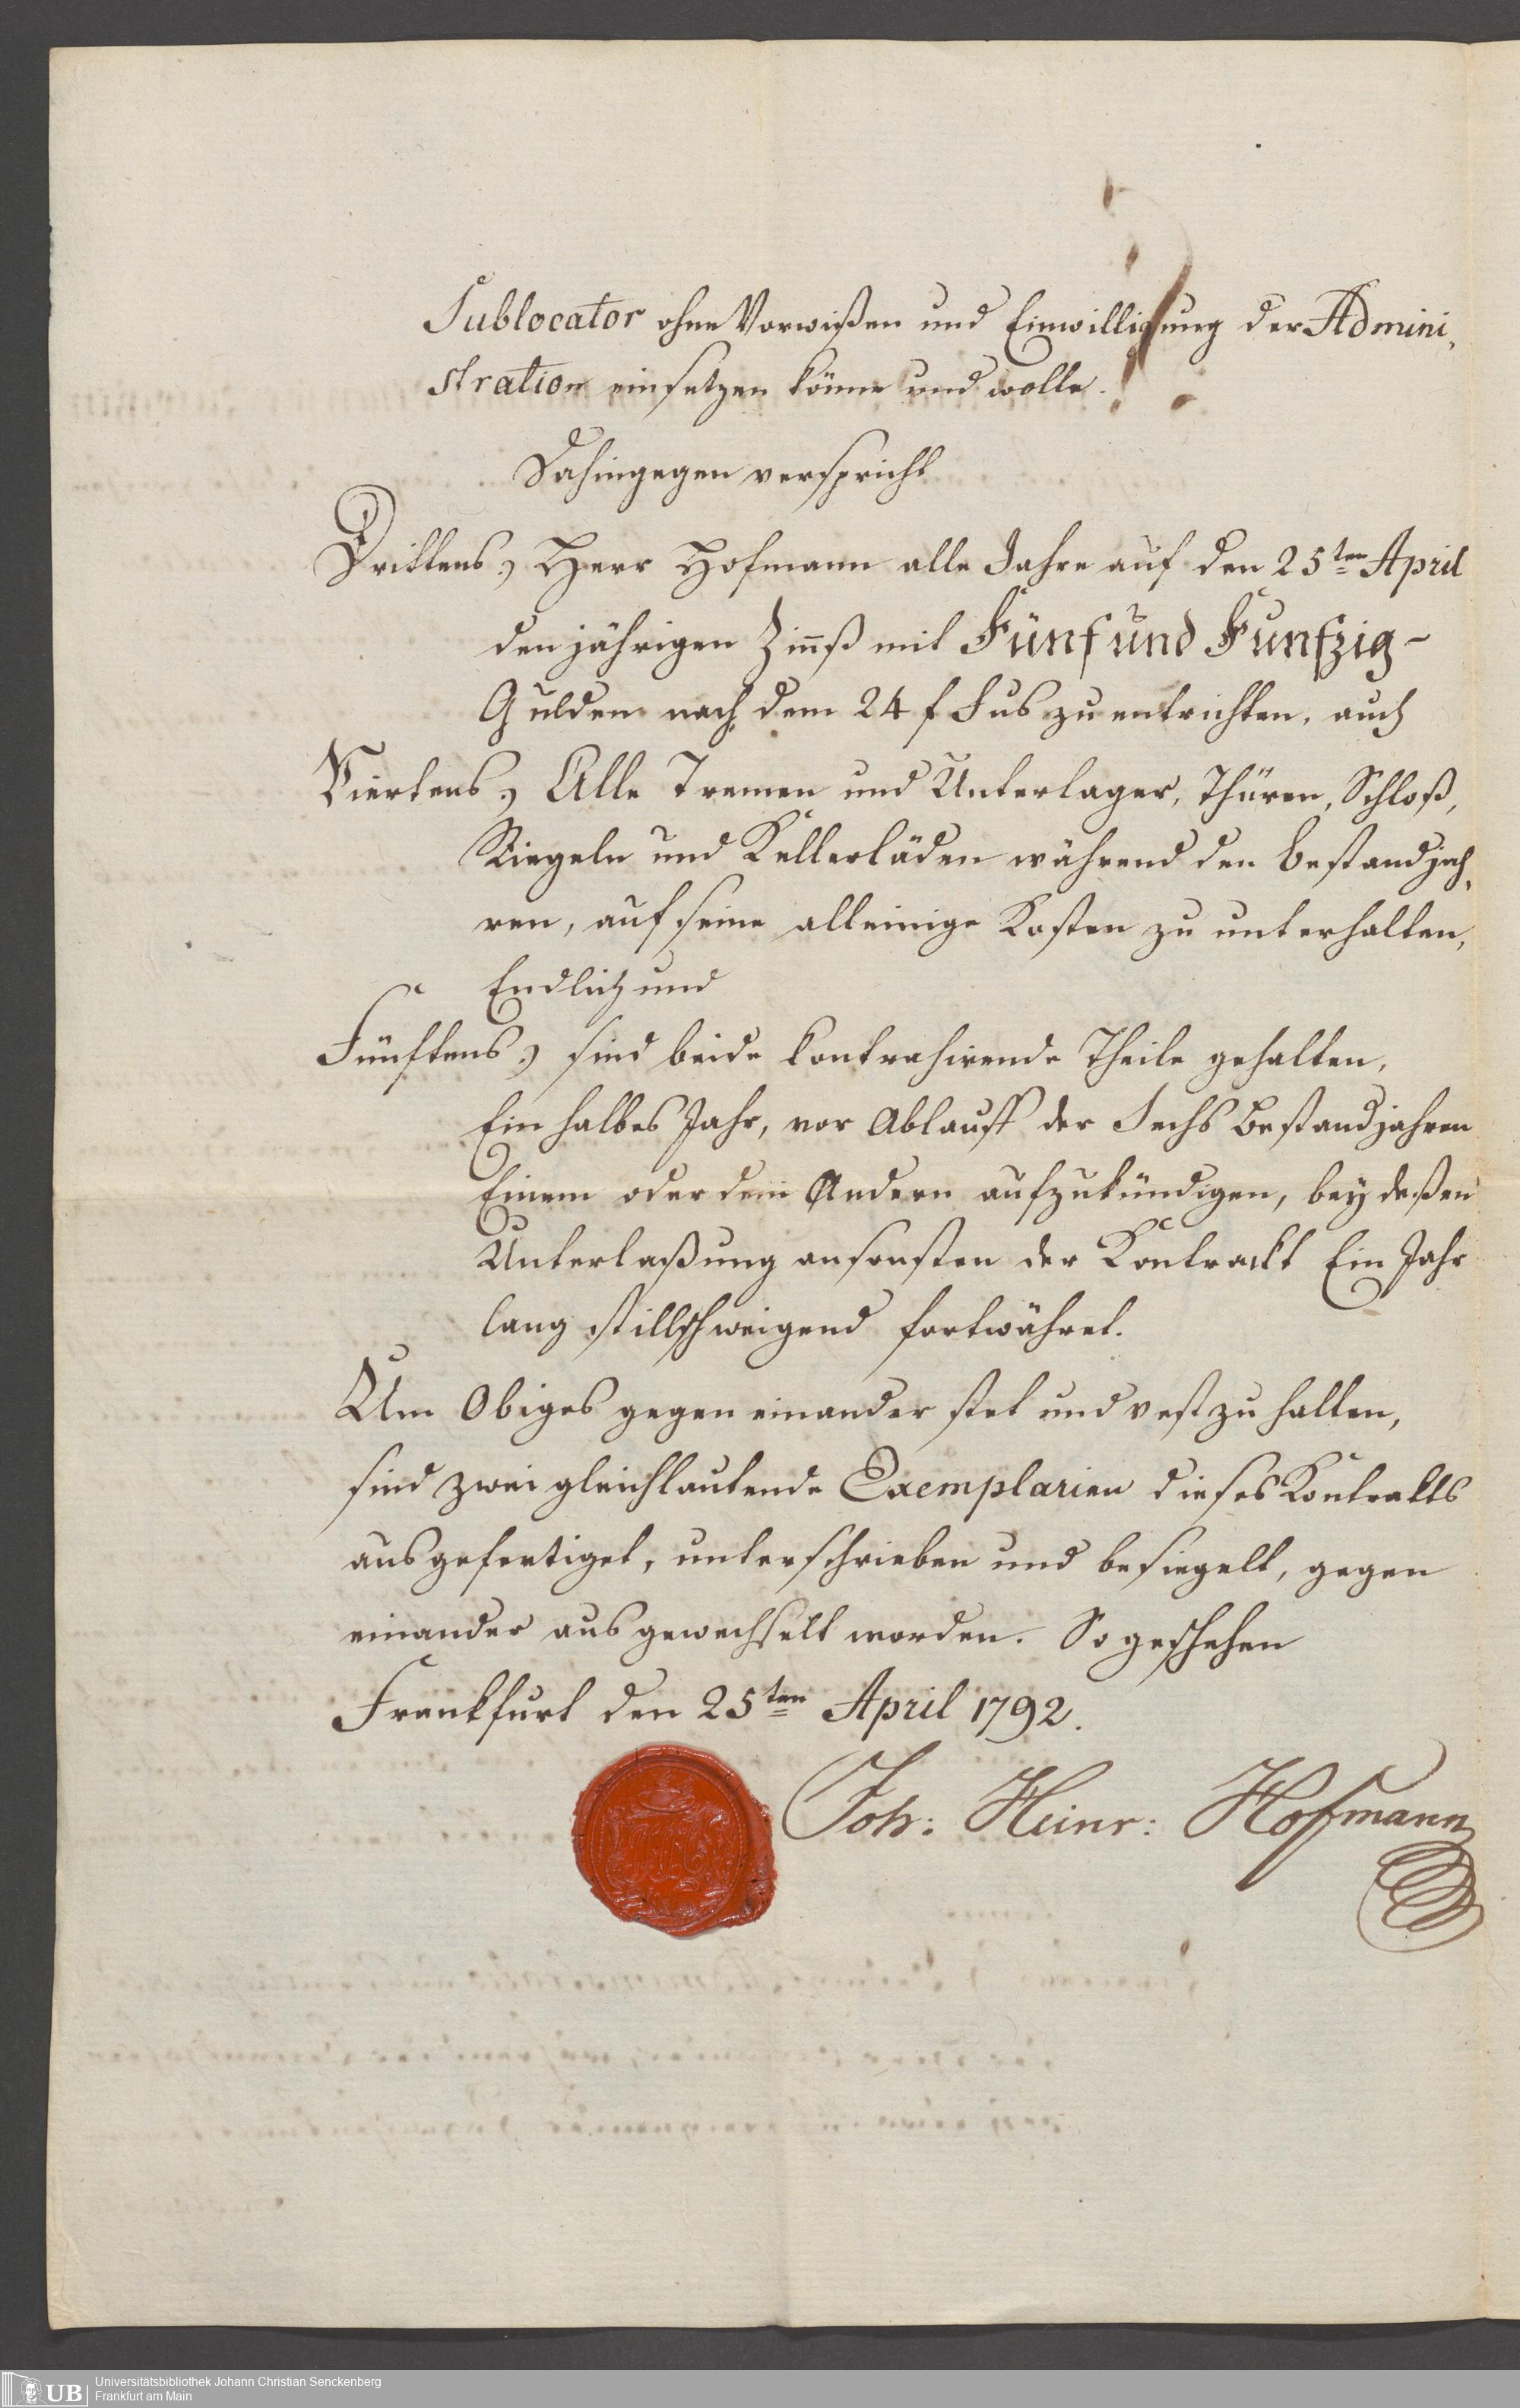 Sublocator ohne Vorwißen und Einwilligung der Admini,
stration einsetzen könne und wolle.
Dahingegen verspricht
Drittens, Herr Hofmann alle Jahre auf den 25ten April
den jährigen Zinnß mit Fünf und Funfzig-
Gulden nach dem 24 f Fus zu entrichten, auch
Viertens, Alle Tremen und Unterlager, Thüren, Schloß,
Riegeln und Kellerläden während den bestandjah,
ren, auf seine alleinige Kosten zu unterhalten,
Endlich und
Fünftens, sind beide Contrahirende Theile gehalten,
Ein halbes Jahr, vor Ablauff der Sechs Bestandjahren
Einem oder dem Andern aufzukündigen, bey deßen
Unterlaßung ansonsten der Kontrackt Ein Jahr
lang stillschweigend fortwähret.
Um Obiges gegen einander stet und vest zu halten,
sind zwei gleichlautende Exemplarien dieses Kontrakts
ausgefertiget, unterschrieben und besiegelt, gegen
einander ausgewechselt worden. So geschehen
Frankfurt den 25ten April 1792.
Joh: Heinr: Hofmann
UB
Universitätsbibliothek Johann Christian Senckenberg
Frankfurt am Main